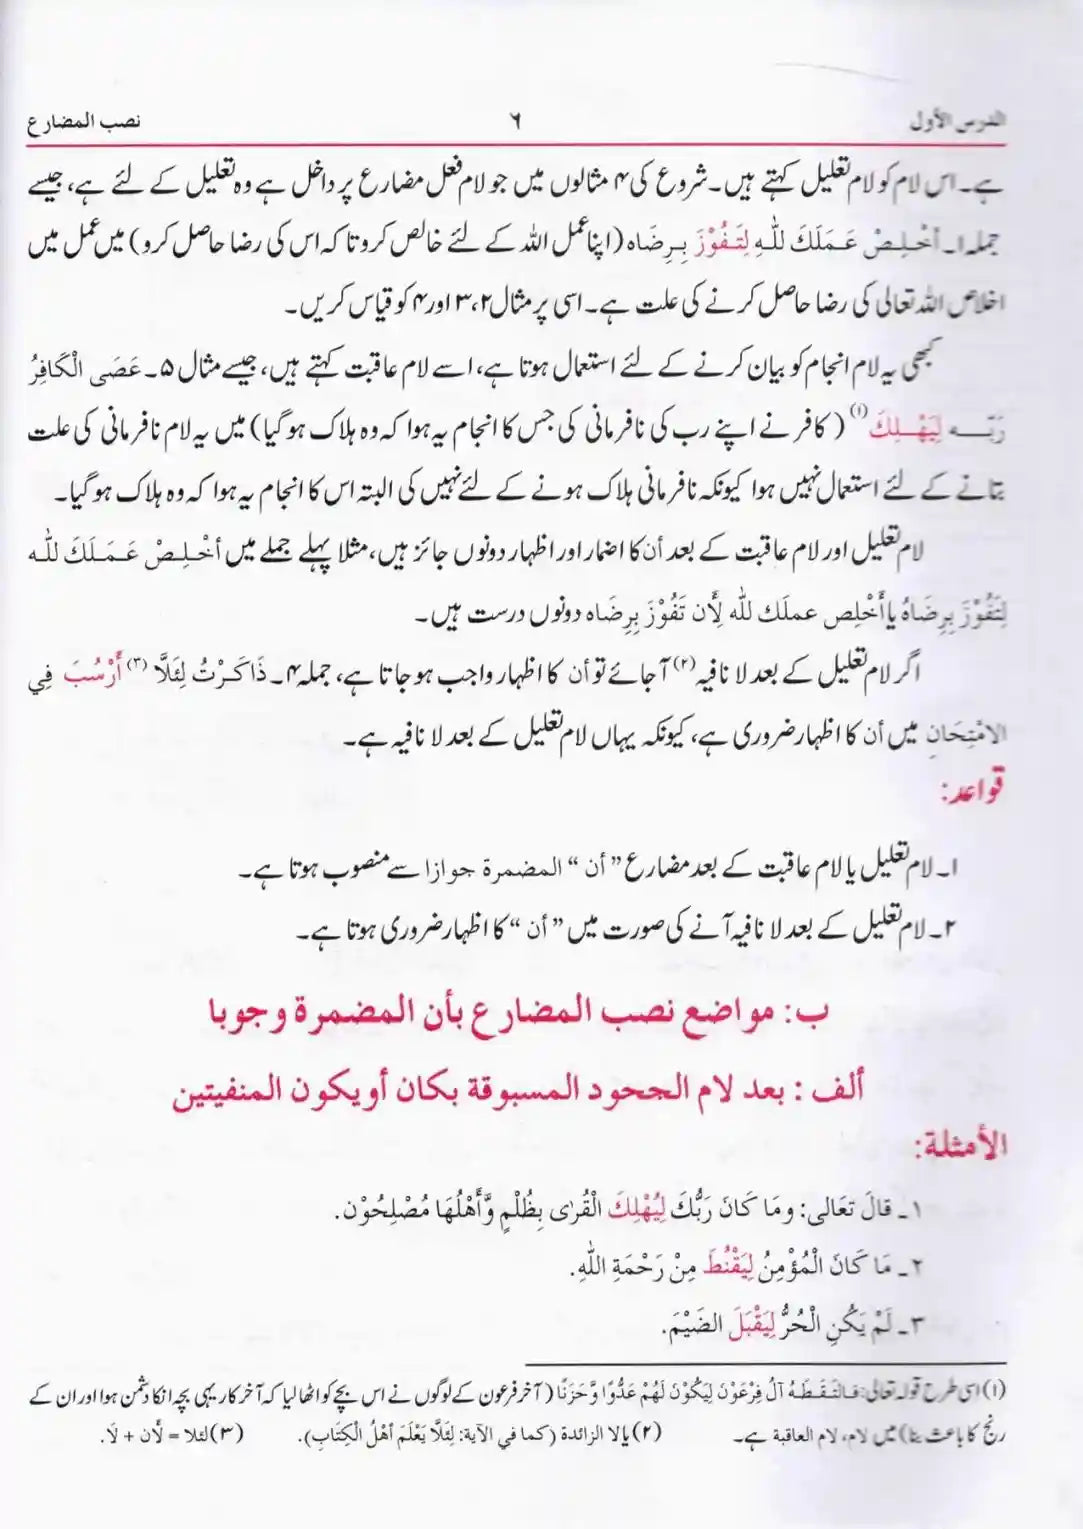 الدرس الأول ٦ نصب المضارع
ہے۔ اس لام کو لام تعلیل کہتے ہیں۔ شروع کی ۴ مثالوں میں جو لام فعل مضارع پر داخل ہے وہ تعلیل کے لئے ہے، جیسے
جملہ ۱۔ أخْلِصْ عَمَلَكَ للهِ لِتَفُوْزَ بِرِضَاه (اپنا عمل اللہ کے لئے خالص کرو تا کہ اس کی رضا حاصل کرو) میں عمل میں
اخلاص اللہ تعالی کی رضا حاصل کرنے کی علت ہے۔ اسی پر مثال ۲،۳ اور ۴ کو قیاس کریں۔
کبھی یہ لام انجام کو بیان کرنے کے لئے استعمال ہوتا ہے، اسے لام عاقبت کہتے ہیں، جیسے مثال ۵۔ عَصَى الْكَافِرُ
رَبَّه لِيَهْلِكَ (۱) (کافر نے اپنے رب کی نافرمانی کی جس کا انجام یہ ہوا کہ وہ ہلاک ہو گیا) میں یہ لام نافرمانی کی علت
بتانے کے لئے استعمال نہیں ہوا کیونکہ نافرمانی ہلاک ہونے کے لئے نہیں کی البتہ اس کا انجام یہ ہوا کہ وہ ہلاک ہو گیا۔
لام تعلیل اور لام عاقبت کے بعد أن کا اضمار اور اظہار دونوں جائز ہیں، مثلا پہلے جملے میں أخْلِصْ عَمَلَكَ لله
لِتَفُوْزَ بِرِضَاهُ یا أَخْلِص عملَك لله لِأَن تَفُوْزَ بِرِضَاه دونوں درست ہیں۔
اگر لام تعلیل کے بعد لا نافیہ (۲) آجائے تو أن کا اظہار واجب ہو جاتا ہے، جملہ ۴۔ ذَاكَرْتُ لِئَلَّا (۳) أَرْسُبَ فِي
الامْتِحَانِ میں أن کا اظہار ضروری ہے، کیونکہ یہاں لام تعلیل کے بعد لا نافیہ ہے۔
قواعد:
۱۔ لام تعلیل یا لام عاقبت کے بعد مضارع ”أن“ المضمرة جوازا سے منصوب ہوتا ہے۔
۲۔ لام تعلیل کے بعد لا نافیہ آنے کی صورت میں ”أن“ کا اظہار ضروری ہوتا ہے۔
ب: مواضع نصب المضارع بأن المضمرة وجوبا
ألف : بعد لام الجحود المسبوقة بكان أو يكون المنفيتين
الأمثلة:
۱۔ قالَ تعَالى: ومَا كَانَ رَبُّكَ لِيُهْلِكَ الْقُرٰى بِظُلْمٍ وَّأَهْلُهَا مُصْلِحُوْن.
۲۔ مَا كَانَ الْمُؤْمِنُ لِيَقْنُطَ مِنْ رَحْمَةِ اللهِ.
۳۔ لَمْ يَكُنِ الْحُرُّ لِيَقْبَلَ الضَيْمَ.
(۱) اسی طرح قوله تعالى: فالتَقَطَهُ آلُ فِرْعَوْنَ لِيَكُوْنَ لَهُمْ عَدُوًّا وَّحَزَنًا (آخر فرعون کے لوگوں نے اس بچے کو اٹھا لیا کہ آخر کار یہی بچہ انکا دشمن ہوا اور ان کے
رنج کا باعث بنا) میں لام، لام العاقبة ہے۔ (۲) یا لا الزائدة (كما في الآية: لِئَلَّا يَعْلَمَ أهْلُ الْكِتَابِ). (۳) لئلا = لأن + لَا.